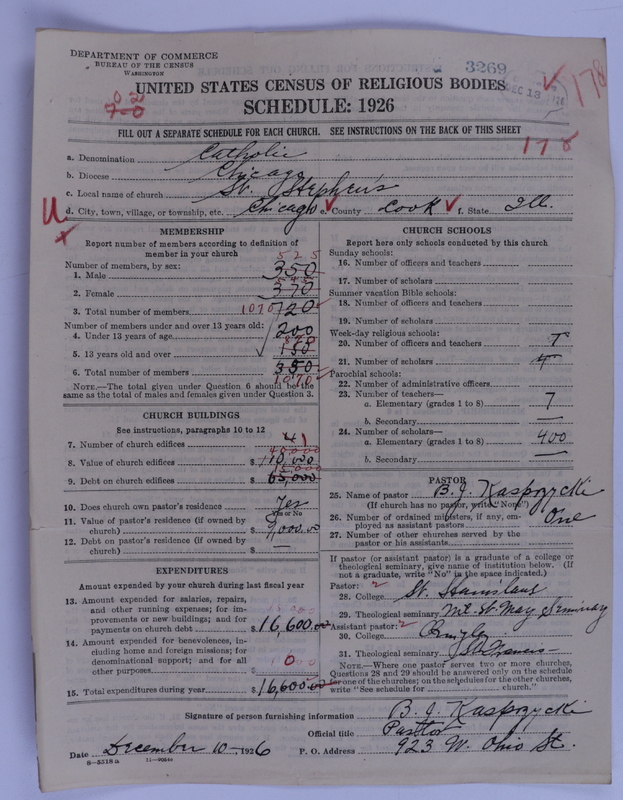 DEPARTMENT OF COMMERCE
BUREAU OF THE CENSUS
WASHINGTON
3269
DEC 18
178
UNITED STATES CENSUS OF RELIGIOUS BODIES
SCHEDULE: 1926
FILL OUT A SEPARATE SCHEDULE FOR EACH CHURCH. SEE INSTRUCTIONS ON THE BACK OF THIS SHEET
178
a. Denomination Catholic
b. Diocese Chicago
c. Local name of church St. Stephen's
d. City, town, village, or township, etc. Chicago e. County Cook f. State Ill.
MEMBERSHIP
Report number of members according to definition of
member in your church
Number of members, by sex:
525
1. Male 350
2. Female 370
3. Total number of members 1070 720
Number of members under and over 13 years old:
4. Under 13 years of age 200
870
5. 13 years old and over 150
6. Total number of members 350
1070
NOTE.—The total given under Question 6 should be the
same as the total of males and females given under Question 3.
CHURCH BUILDINGS
See instructions, paragraphs 10 to 12
7. Number of church edifices 1
8. Value of church edifices $110,000
9. Debt on church edifices $65,000
10. Does church own pastor's residence Yes
Yes or No
11. Value of pastor's residence (if owned by
church) $9,000.00
12. Debt on pastor's residence (if owned by
church) $ —
EXPENDITURES
Amount expended by your church during last fiscal year
13. For amount expended for salaries, repairs,
and other running expenses; for im-
provements or new buildings; and for
payments on church debt $16,600.00
14. Amount expended for benevolences, in-
cluding home and foreign missions; for
denominational support; and for all
other purposes $ 0
15. Total expenditures during year $16,600.00
CHURCH SCHOOLS
Report here only schools conducted by this church
Sunday schools:
16. Number of officers and teachers
17. Number of scholars
Summer vacation Bible schools:
18. Number of officers and teachers
19. Number of scholars
Week-day religious schools:
20. Number of officers and teachers
21. Number of scholars
Parochial schools:
22. Number of administrative officers
23. Number of teachers—
a. Elementary (grades 1 to 8) 7
b. Secondary —
24. Number of scholars—
a. Elementary (grades 1 to 8) 400
b. Secondary —
PASTOR
25. Name of pastor B. J. Kasprzycki
(If church has no pastor, write "None")
26. Number of ordained ministers, if any, em-
ployed as assistant pastors One
27. Number of other churches served by the
pastor or his assistants
If pastor (or assistant pastor) is a graduate of a college or
theological seminary, give name of institution below. (If
not a graduate, write "No" in the space indicated.)
Pastor: 2
28. College St. Stanislaus
29. Theological seminary Mt. St. Mary Seminary
Assistant pastor: 2
30. College
31. Theological seminary St. Francis
NOTE.—Where one pastor serves two or more churches,
Questions 28 and 29 should be answered only on the schedule
for one of the churches; on the schedules for the other churches,
write "See schedule for church."
Signature of person furnishing information B. J. Kasprzycki
Official title Pastor
Date December 10, 1926 P. O. Address 923 W. Ohio St.
8—5518a